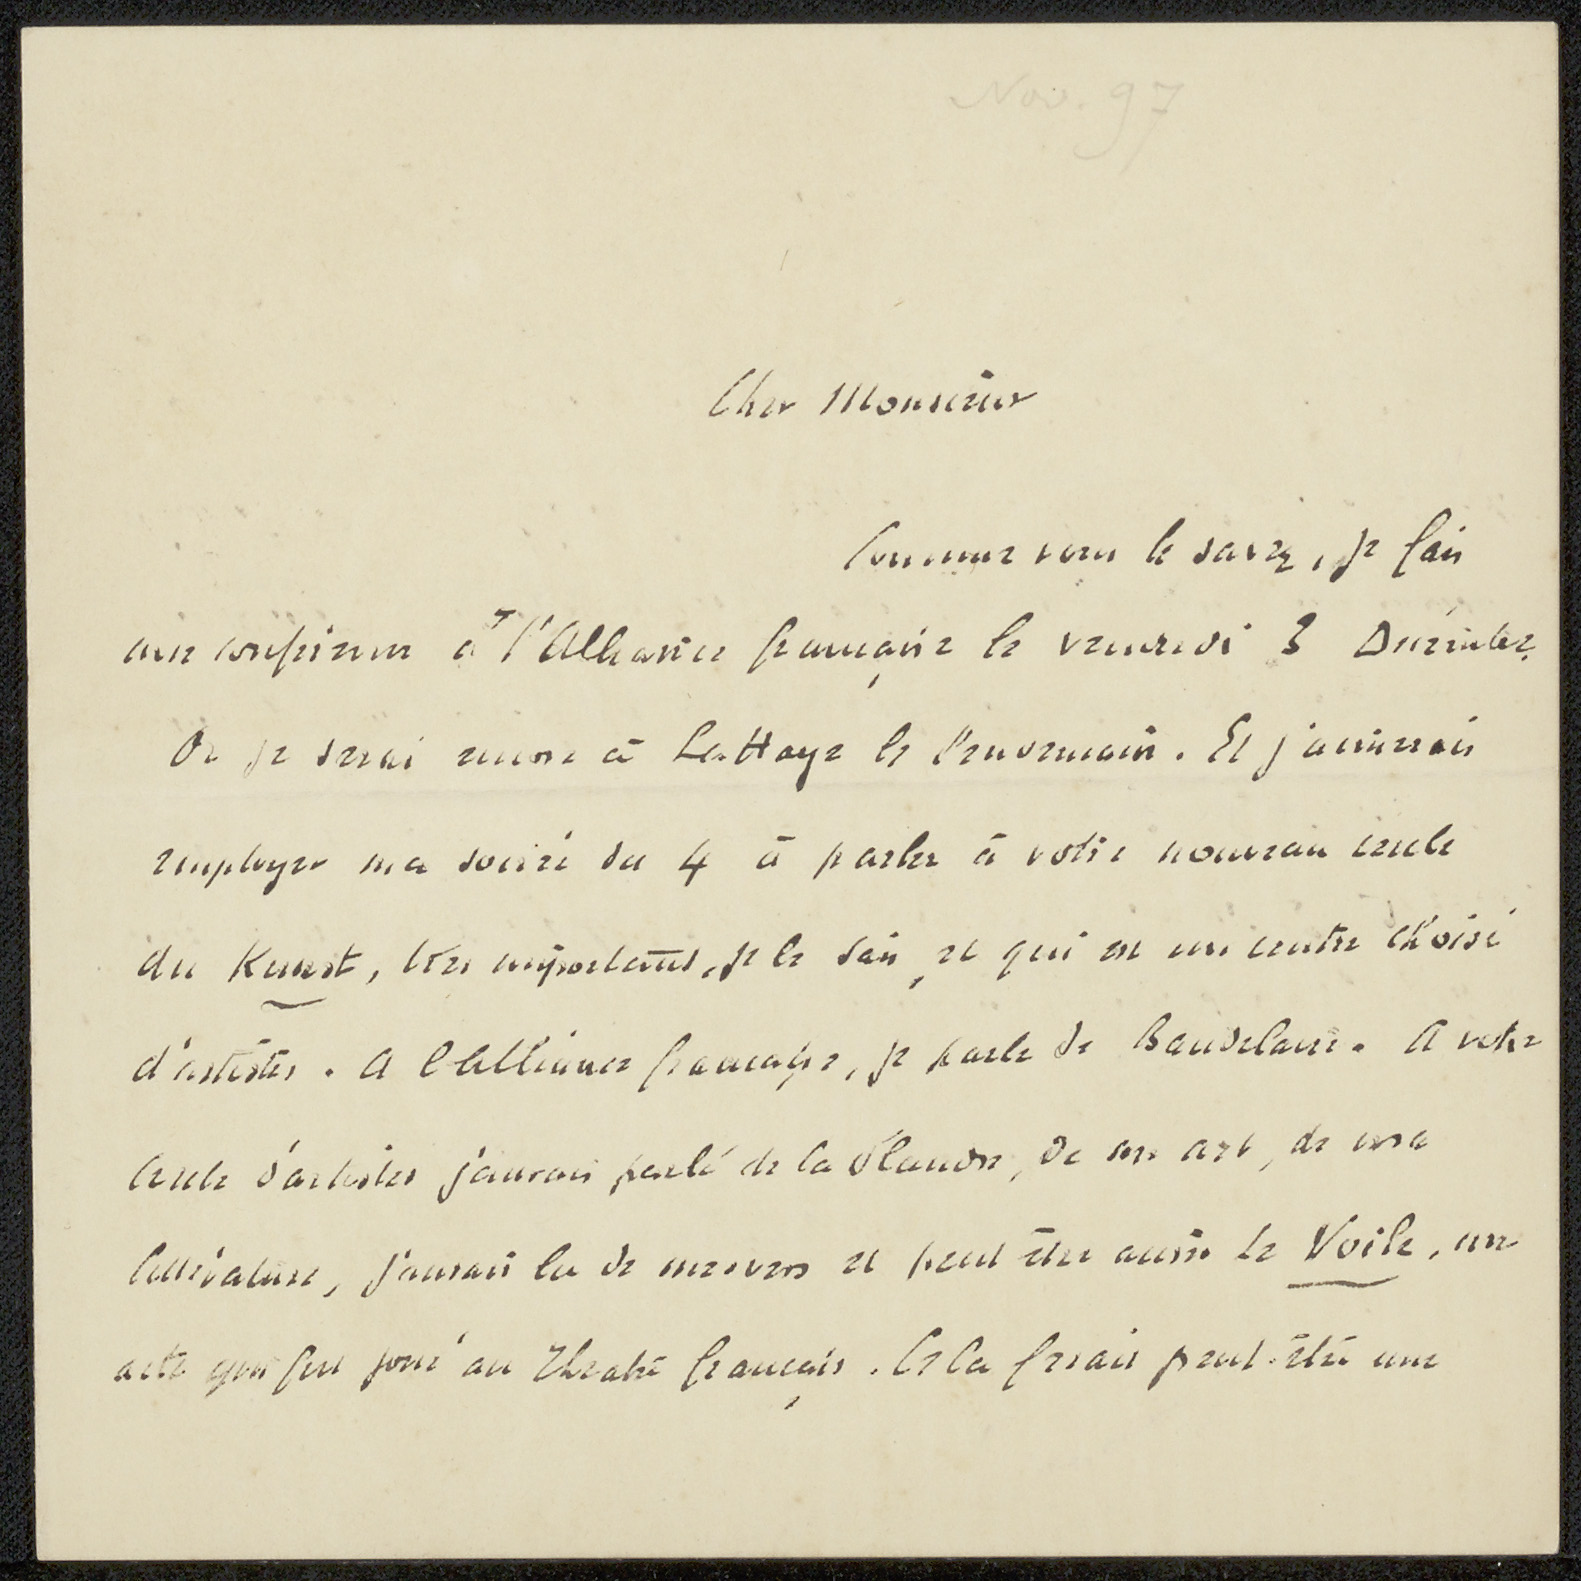 Nov. 97
Cher Monsieur
Comme vous le savez, je fais
une conférence à l'Alliance française le vendredi 3 Décembre.
Or je serai encore à La Haye le lendemain. Et j'aimerais
employer ma soirée du 4 à parler à votre nouveau cercle
du Kunst, très important, je le sais, et qui est un centre choisi
d'artistes. A l'Alliance française, je parle de Baudelaire. A votre
Cercle d'artistes j'aurais parlé de la Flandre, de son art, de sa
littérature, j'aurais lu de mes vers et peut être aussi Le Voile, un
acte qui fut joué au Théatre français. Cela ferait peut-être une